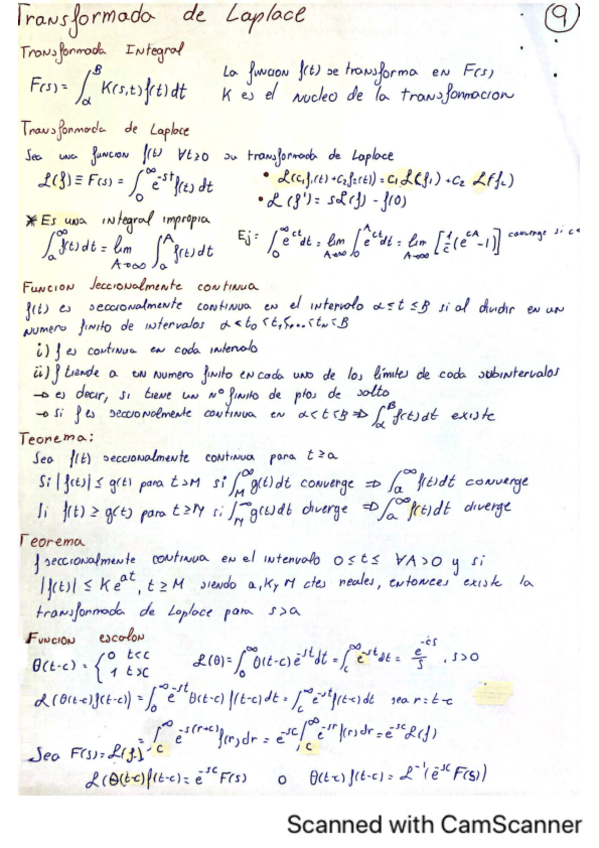 Transformada de Laplace 9
Transformada Integral
F(s) = ∫_α^B K(s,t) f(t) dt La funcion f(t) se transforma en F(s)
K es el nucleo de la transformacion
Transformada de Laplace
Sea una funcion f(t) ∀t≥0 su transformada de Laplace
ℒ(f) ≡ F(s) = ∫_0^∞ e^{-st} f(t) dt • ℒ(c₁f₁(t)+c₂f₂(t)) = c₁ℒ(f₁) + c₂ ℒ(f₂)
• ℒ(f') = sℒ(f) - f(0)
* Es una integral impropia
∫_a^∞ f(t)dt = lim_{A→∞} ∫_a^A f(t)dt Ej: ∫_0^∞ e^{ct} dt = lim_{A→∞} ∫_0^A e^{ct} dt = lim_{A→∞} [1/c (e^{cA} - 1)] converge si c
Funcion seccionalmente continua
f(t) es seccionalmente continua en el intervalo α ≤ t ≤ B si al dividir en un
numero finito de intervalos α < t₀ < t₁ < ... < t_N < B
i) f es continua en cada intervalo
ii) f tiende a un numero finito en cada uno de los límites de cada subintervalos
→ es decir, si tiene un nº finito de ptos de salto
→ Si f es seccionalmente continua en α < t < B ⇒ ∫_α^B f(t)dt existe
Teorema:
Sea f(t) seccionalmente continua para t ≥ a
Si |f(t)| ≤ g(t) para t>M si ∫_M^∞ g(t)dt converge ⇒ ∫_a^∞ f(t)dt converge
Si f(t) ≥ g(t) para t≥M si ∫_M^∞ g(t)dt diverge ⇒ ∫_a^∞ f(t)dt diverge
Teorema
f seccionalmente continua en el intervalo 0 ≤ t ≤ ∀A>0 y si
|f(t)| ≤ K e^{at}, t ≥ M siendo a, K y M ctes reales, entonces existe la
transformada de Laplace para s>a
Funcion escalon
θ(t-c) = { 0 t<c ℒ(θ) = ∫_0^∞ θ(t-c) e^{-st} dt = ∫_c^∞ e^{-st} dt = e^{-cs}/s, s>0
1 t>c
ℒ(θ(t-c)f(t-c)) = ∫_0^∞ e^{-st} θ(t-c) f(t-c) dt = ∫_c^∞ e^{-st} f(t-c) dt sea r = t-c
= ∫_c^∞ e^{-s(r+c)} f(r) dr = e^{-sc} ∫_c^∞ e^{-sr} f(r) dr = e^{-sc} ℒ(f)
Sea F(s) = ℒ(f)
ℒ(θ(t-c) f(t-c) = e^{-sc} F(s) o θ(t-c) f(t-c) = ℒ^{-1}(e^{-sc} F(s))
Scanned with CamScanner